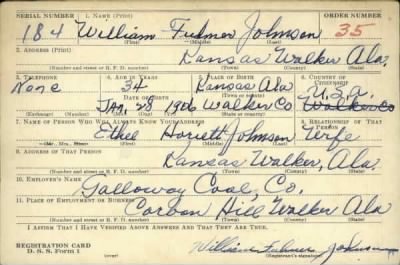 SERIAL NUMBER 1. NAME (Print) ORDER NUMBER
184 William Fulmor Johnson 35
(First) (Middle) (Last)
2. ADDRESS (Print)
Kansas Walker Ala.
(Number and street or R. F. D. number) (Town) (County) (State)
3. TELEPHONE 4. AGE IN YEARS 5. PLACE OF BIRTH 6. COUNTRY OF CITIZENSHIP
None 34 Kansas Ala U.S.A.
DATE OF BIRTH (Town or county)
Jan 28 1906 Walker Co Walker Co
(Exchange) (Number) (Mo.) (Day) (Yr.) (State or country)
7. NAME OF PERSON WHO WILL ALWAYS KNOW YOUR ADDRESS 8. RELATIONSHIP OF THAT PERSON
Ethel Hariett Johnson Wife
(Mr., Mrs., Miss) (First) (Middle) (Last)
9. ADDRESS OF THAT PERSON
Kansas Walker, Ala.
(Number and street or R. F. D. number) (Town) (County) (State)
10. EMPLOYER'S NAME
Galloway Coal, Co.
11. PLACE OF EMPLOYMENT OR BUSINESS
Carbon Hill Walker Ala
(Number and street or R. F. D. number) (Town) (County) (State)
I AFFIRM THAT I HAVE VERIFIED ABOVE ANSWERS AND THAT THEY ARE TRUE.
REGISTRATION CARD
D. S. S. Form 1 (over) William Fulmer Johnson
(Registrant's signature)